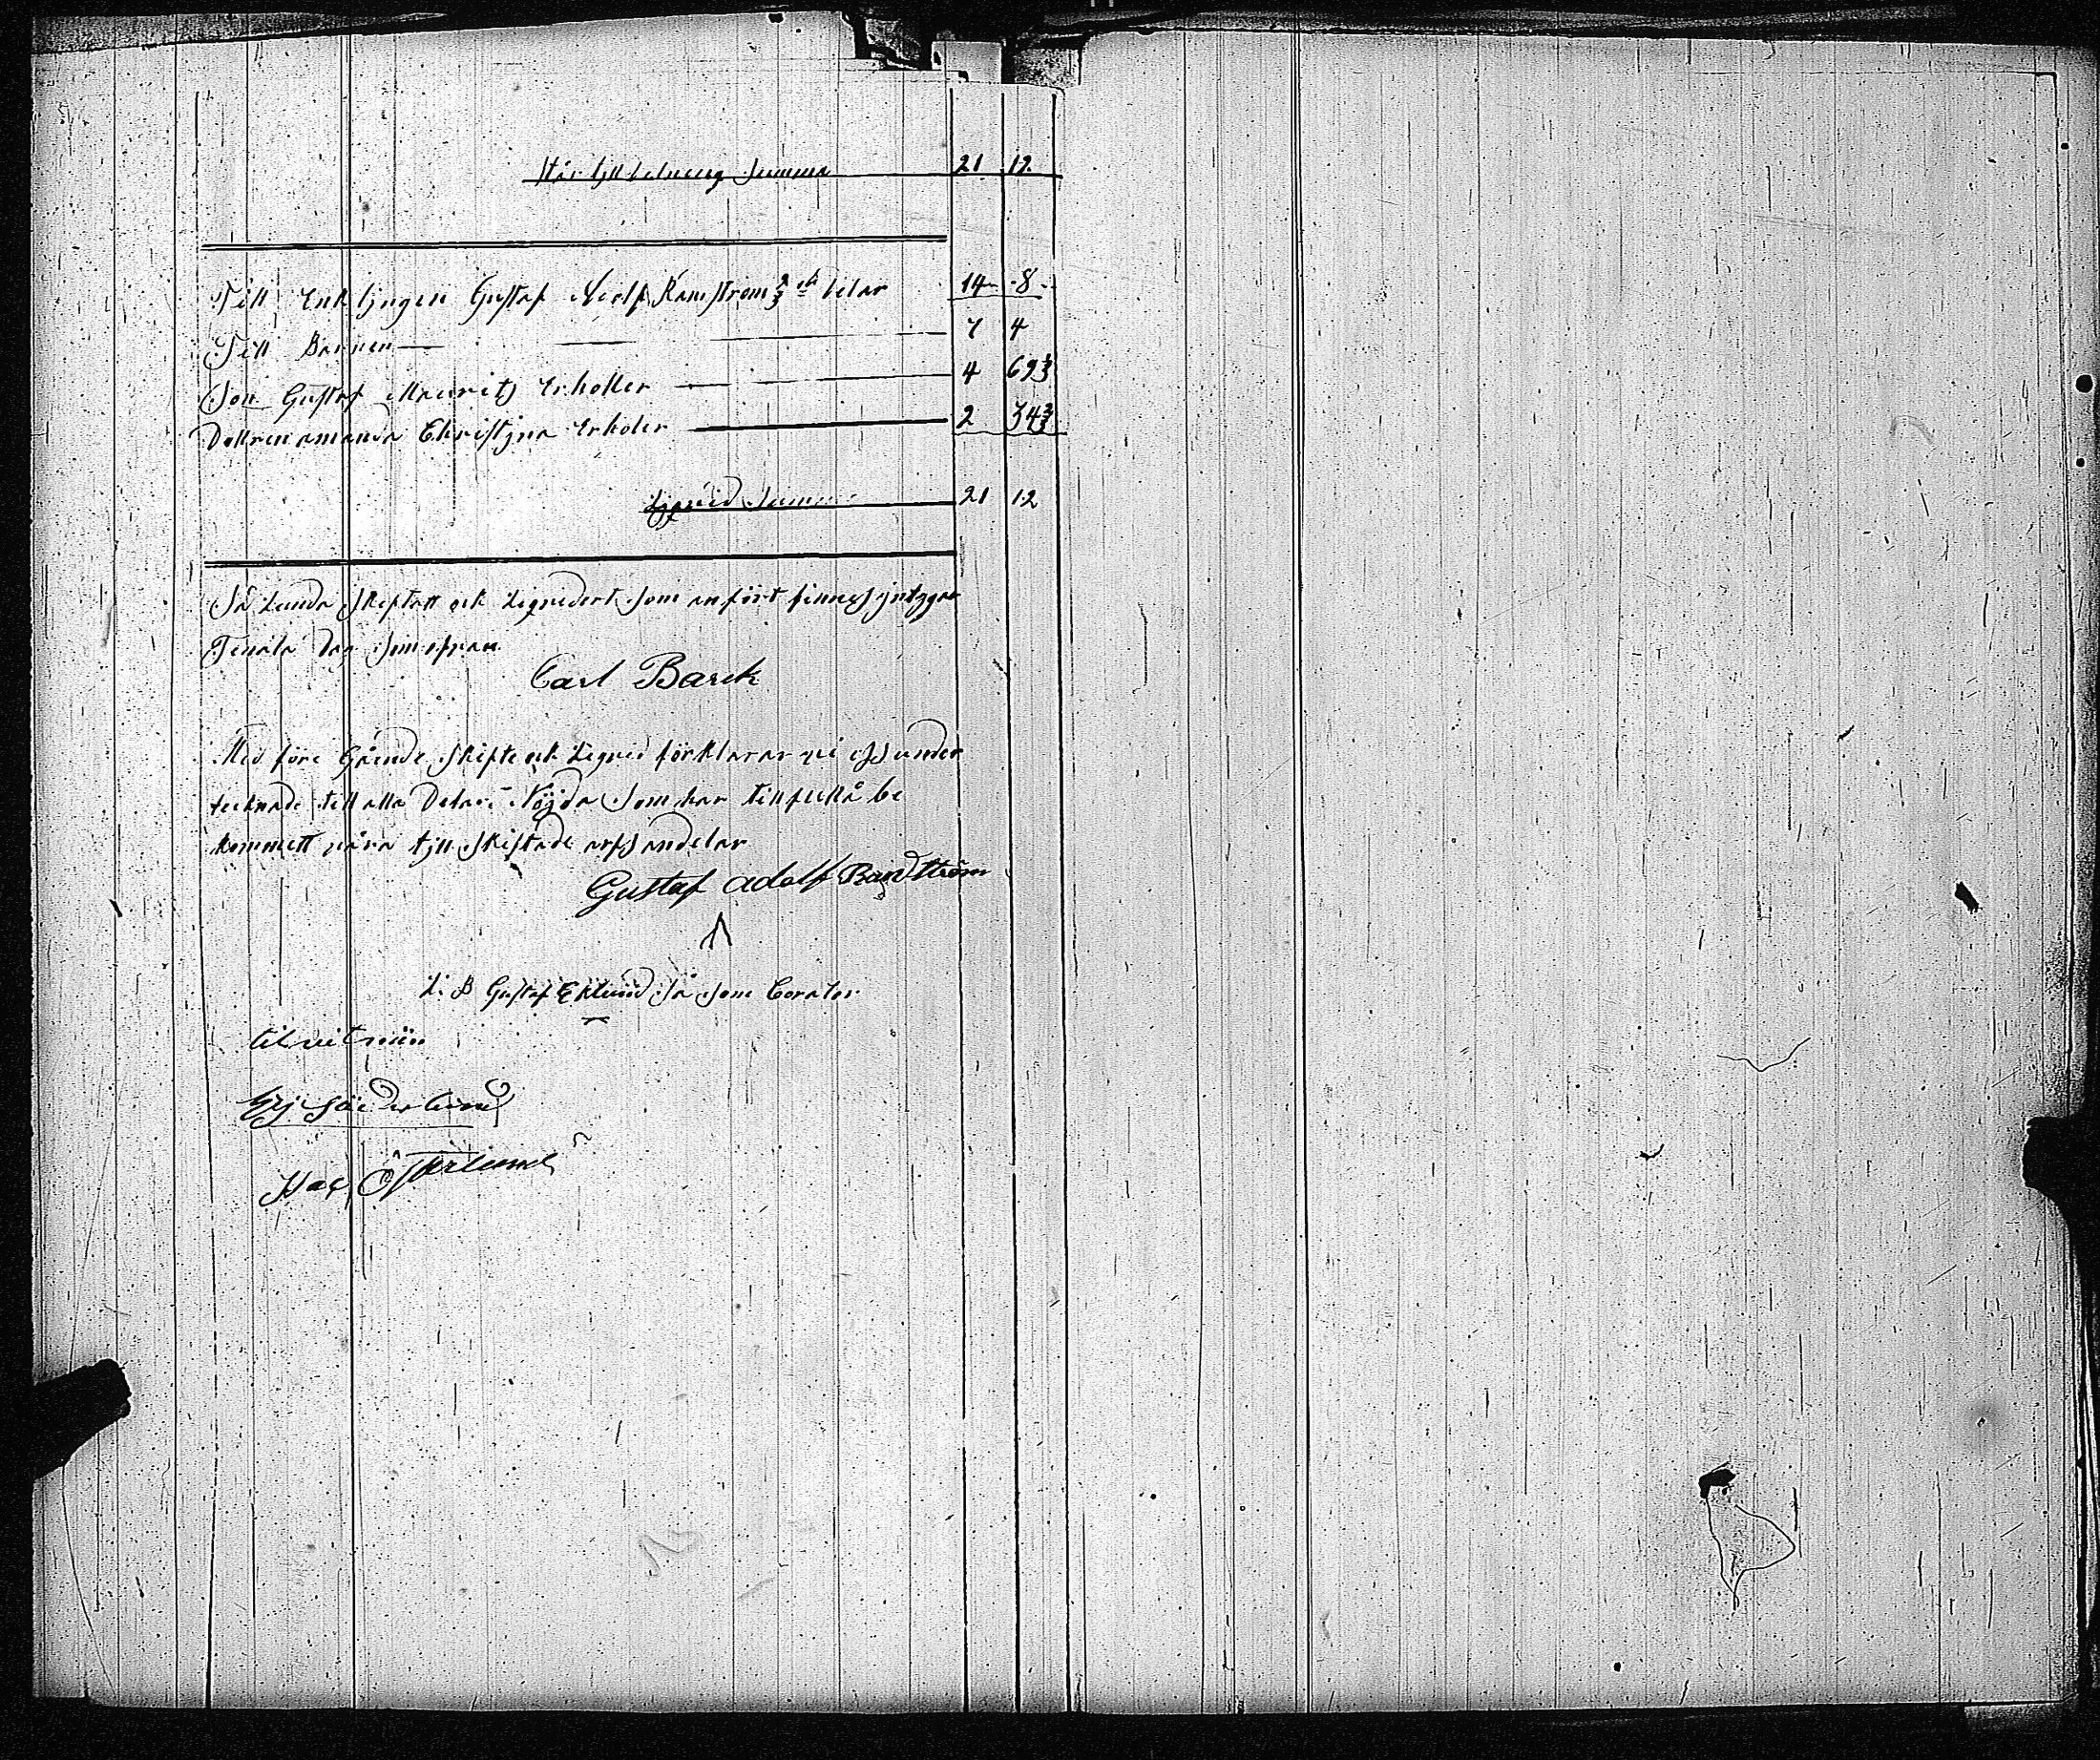 Står till delning Summa 21 12.
Till Enklingen Gustaf Adolf Ramström 2/3 delar 14 8
Till Barnen 7 4
Son Gustaf Mauritz Erholler 4 69 1/3
Dottren amanda Christjna Erholer 2 34 2/3
Liqvid Summa 21 12
Så Lunda Skiftatt och Liqvidert som anfört finnes jntygar
Tenala dag som ofvan
Carl Barck
Med före Gående Skifte och Liqvid förklarar vi oss under
tecknade till alla Delar Nöjda Som har till fullå be
kommett våra till Skiftade arfsandelar
Gustaf Adolf Ramström
L. B Gustaf Eklund Så Som Corator
til vitnän
Söderlund
Österlund